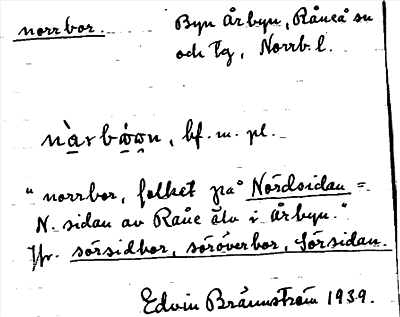 norrbor. Byn Årbyn, Råneå sn
och tg, Norrb. l.
bf. m. pl.
"norrbor, folket på Nordsidan =
N. sidan av Råne älv i Årbyn."
Jfr. sörsidbor, söröverbor, Sörsidan.
Edvin Brännström 1939.